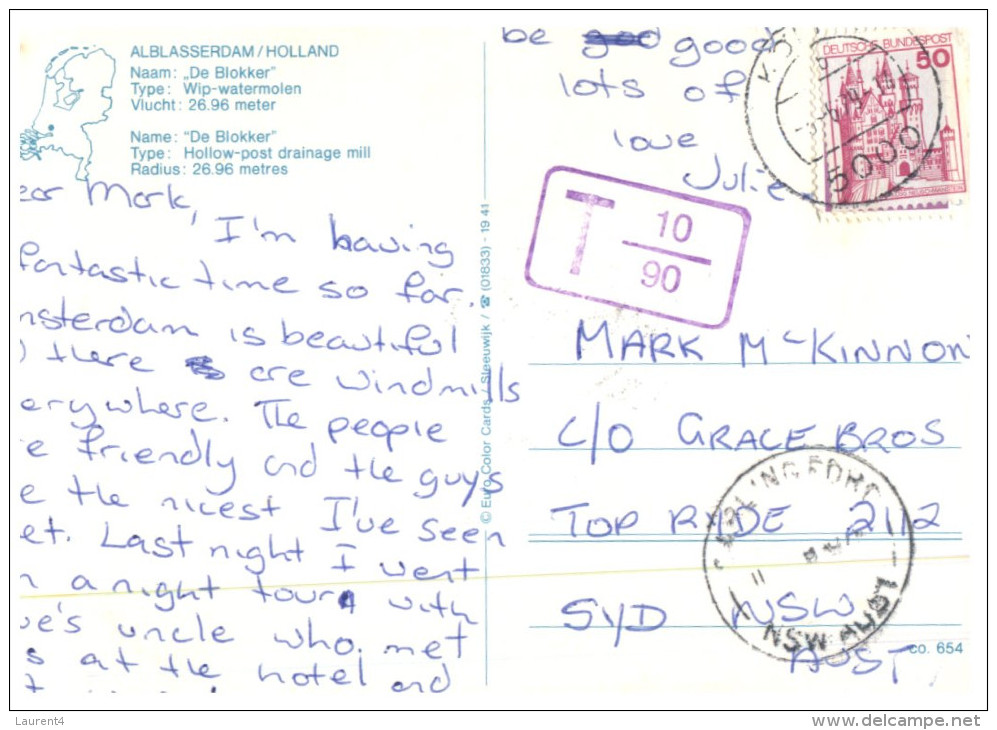 ALBLASSERDAM/HOLLAND
Naam: „De Blokker"
Type: Wip-watermolen
Vlucht: 26.96 meter
Name: "De Blokker"
Type: Hollow-post drainage mill
Radius: 26.96 metres
ear Mark,
I'm having
fantastic time so far.
msterdam is beautiful
there are windmills
erywhere. The people
e friendly and the guys
e the nicest I've seen
et. Last night I went
n a night tour with
ve's uncle who met
s at the hotel and
© Euro Color Cards / Sleeuwijk / ☎ (01833) - 19 41
be good
lots of
love
Julie
DEUTSCHE BUNDESPOST
50
5000
T 10
90
MARK McKINNON
C/O GRACE BROS
TOP RYDE 2112
SYD NSW
AUST
NSW
co. 654
Laurent4
www.delcampe.net